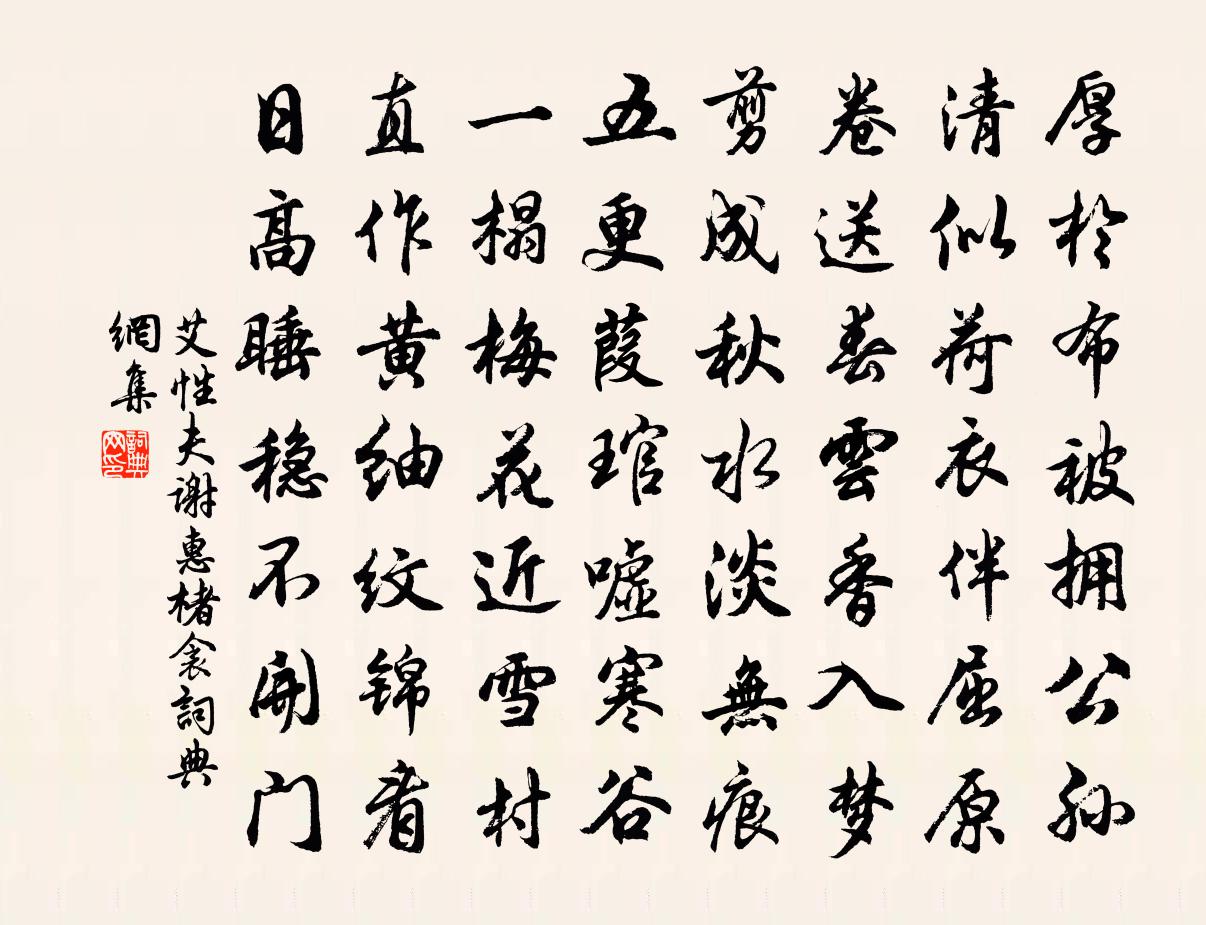 厚於布被拥公孙
清似荷衣伴屈原
卷送春雲香入梦
剪成秋水淡無痕
五更葭琯嘘寒谷
一榻梅花近雪村
直作黄紬纹锦看
日高睡稳不開门
艾性夫謝惠楮衾詞典
網集
詞典
网印